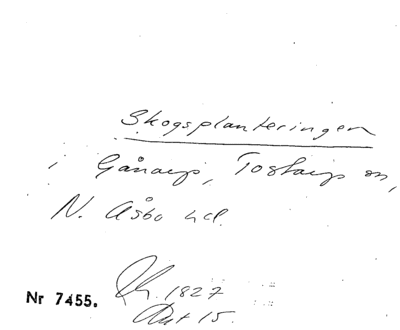 Skogsplanteringen
i Gånarp, Tostarps sn,
N. Åsbo hd.
Nr 7455.
1827
15.